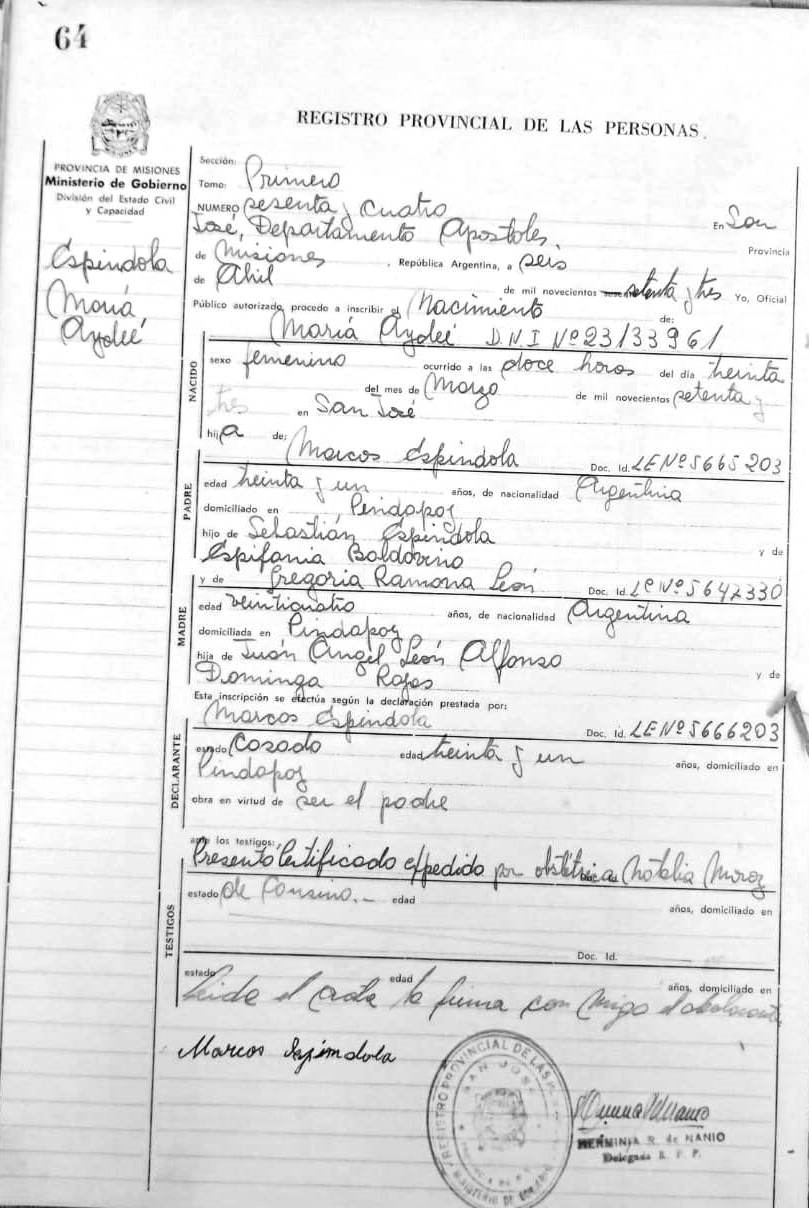 64
REGISTRO PROVINCIAL DE LAS PERSONAS.
PROVINCIA DE MISIONES
Ministerio de Gobierno
División del Estado Civil
y Capacidad
Espíndola
María
Aydeé
Sección:
Tomo: Primero
NUMERO sesenta y cuatro En San
José, Departamento Apostoles, Provincia
de Misiones , República Argentina, a seis
de Abril de mil novecientos setenta y tres Yo, Oficial
Público autorizado, procedo a inscribir el Nacimiento de:
María Aydeé D.N.I Nº 23133961
NACIDO
sexo femenino ocurrido a las doce horas del día treinta
del mes de Marzo de mil novecientos setenta y
tres en San José
hija de: Marcos Espíndola Doc. Id. LE Nº 5665203
PADRE
edad treinta y un años, de nacionalidad Argentina
domiciliado en Pindapoy
hijo de Sebastián Espíndola y de
Espifania Baldovino
y de Gregoria Ramona León Doc. Id. Le Nº 5642330
MADRE
edad veinticuatro años, de nacionalidad Argentina
domiciliada en Pindapoy
hija de Juán Angel León Alfonso y de
Dominga Rojas
Esta inscripción se efectúa según la declaración prestada por:
Marcos Espíndola Doc. Id. LE Nº 5666203
DECLARANTE
estado Casado edad treinta y un años, domiciliado en
Pindapoy
obra en virtud de ser el padre
ante los testigos:
Presentó Certificado expedido por obstétrica Natalia
TESTIGOS
estado de edad años, domiciliado en
Doc. Id.
estado edad años, domiciliado en
Leida el acta la firma con migo el declarante
Marcos Espindola
REGISTRO PROVINCIAL DE LAS
SAN JOSE
MINISTERIO DE GOBIERNO
HERMINIA R. de NANIO
Delegada R. P. P.